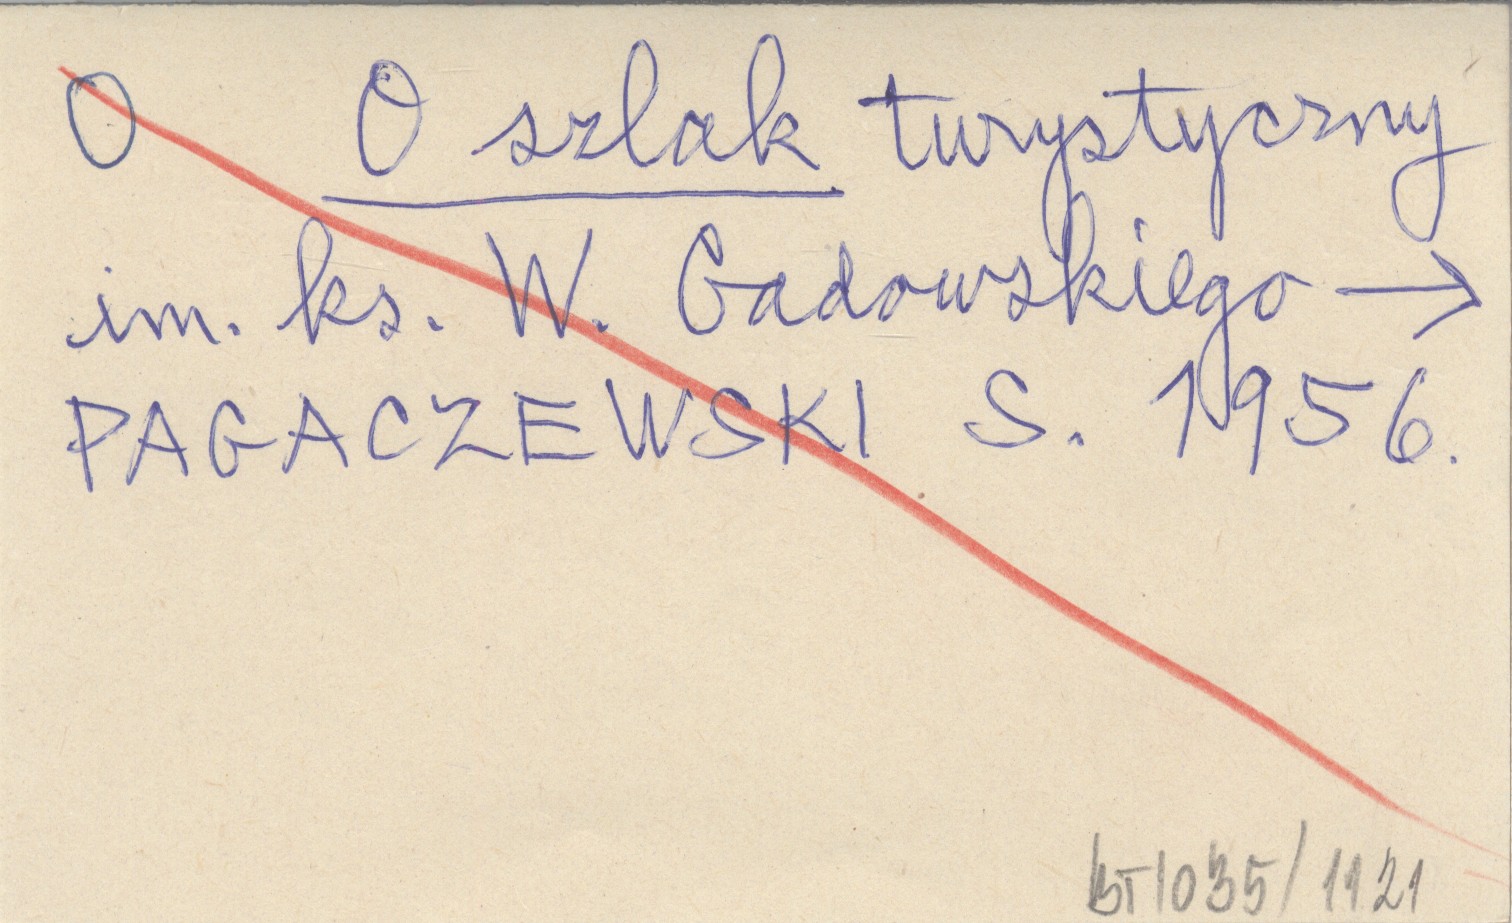 O O szlak turystyczny
im. ks. W. Gadowskiego →
PAGACZEWSKI S. 1956.
BT1035/1121